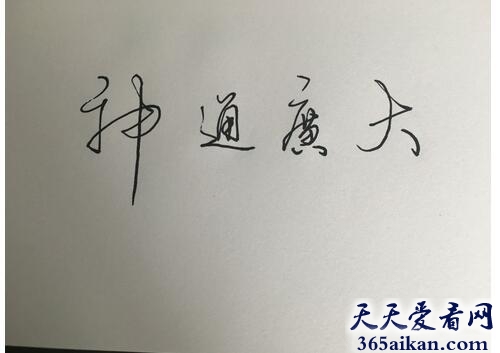 神通廣大
天天爱看网
365aikan.com